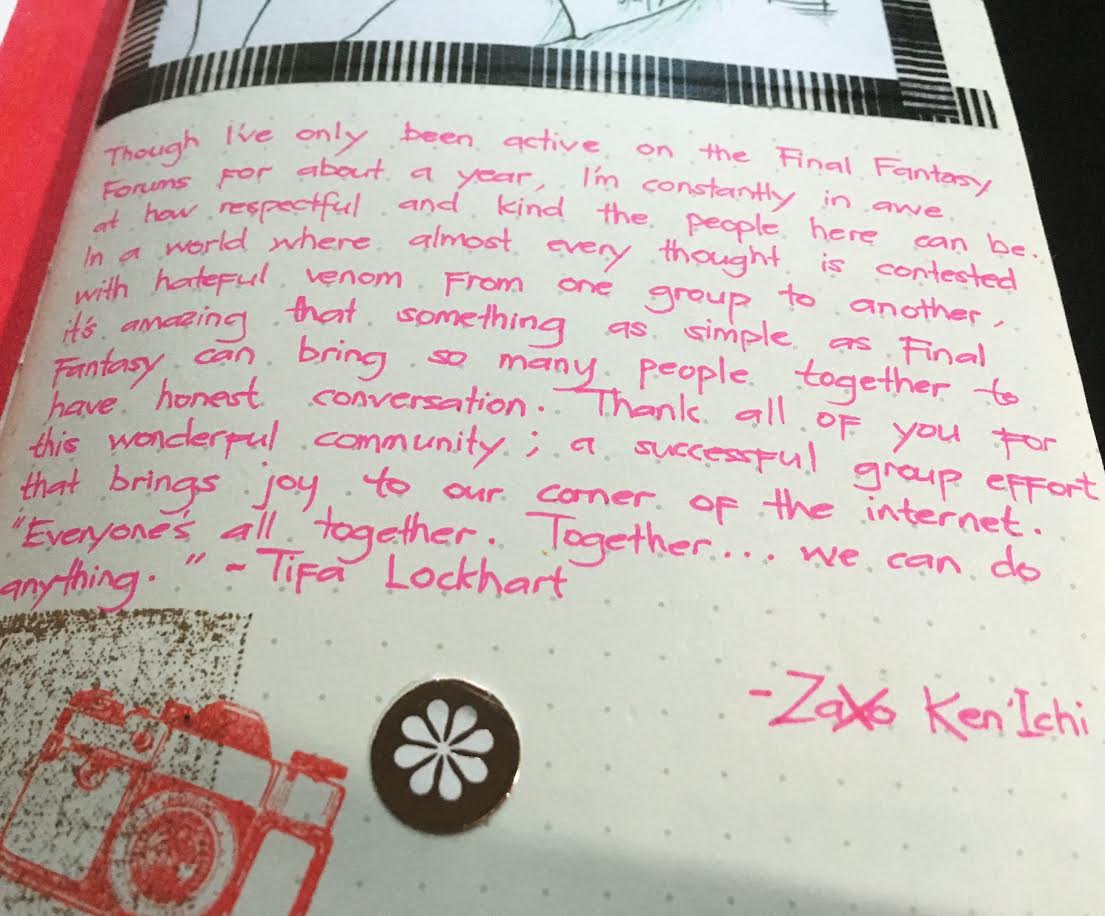 Though I've only been active on the Final Fantasy
Forums for about a year, I'm constantly in awe
at how respectful and kind the people here can be.
In a world where almost every thought is contested
with hateful venom from one group to another,
it's amazing that something as simple as Final
Fantasy can bring so many people together to
have honest conversation. Thank all of you for
this wonderful community; a successful group effort
that brings joy to our corner of the internet.
"Everyone's all together. Together... we can do
anything." - Tifa Lockhart
- Zaxo Ken'Ichi